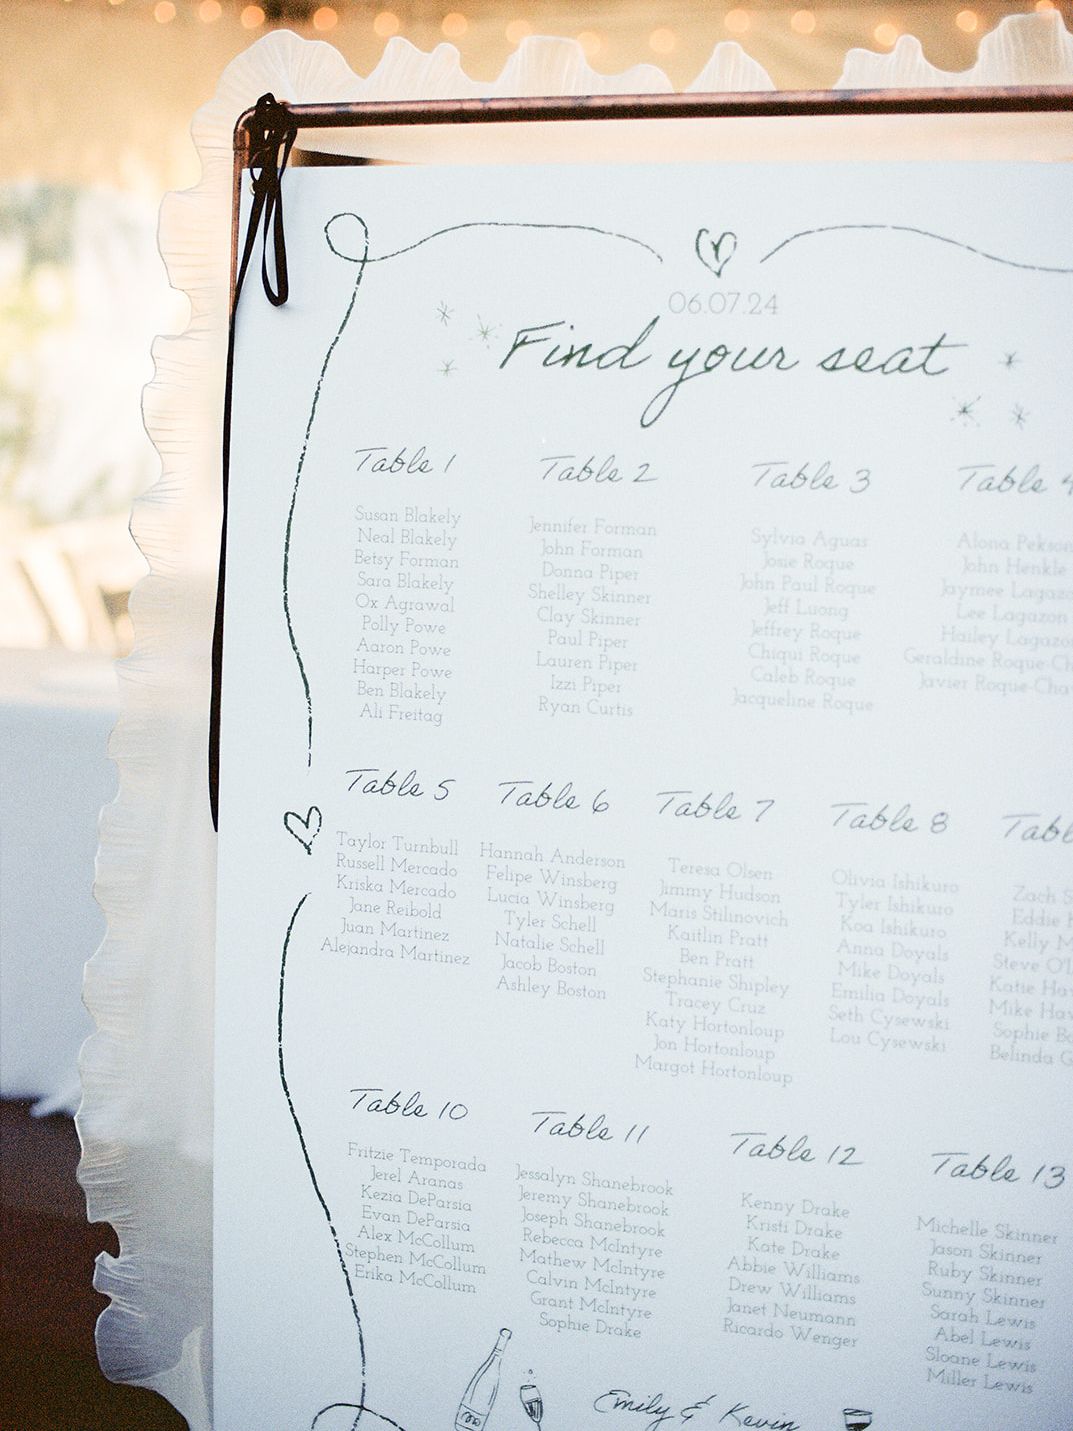 06.07.24
Find your seat
Table 1
Susan Blakely
Neal Blakely
Betsy Forman
Sara Blakely
Ox Agrawal
Polly Powe
Aaron Powe
Harper Powe
Ben Blakely
Ali Freitag
Table 2
Jennifer Forman
John Forman
Donna Piper
Shelley Skinner
Clay Skinner
Paul Piper
Lauren Piper
Izzi Piper
Ryan Curtis
Table 3
Sylvia Aguas
Josie Roque
John Paul Roque
Jeff Luong
Jeffrey Roque
Chiqui Roque
Caleb Roque
Jacqueline Roque
Table 4
Alona Pekson
John Henkle
Jaymee Lagazo
Lee Lagazon
Hailey Lagazo
Geraldine Roque-Ch
Javier Roque-Cha
Table 5
Taylor Turnbull
Russell Mercado
Kriska Mercado
Jane Reibold
Juan Martinez
Alejandra Martinez
Table 6
Hannah Anderson
Felipe Winsberg
Lucia Winsberg
Tyler Schell
Natalie Schell
Jacob Boston
Ashley Boston
Table 7
Teresa Olsen
Jimmy Hudson
Maris Stilinovich
Kaitlin Pratt
Ben Pratt
Stephanie Shipley
Tracey Cruz
Katy Hortonloup
Jon Hortonloup
Margot Hortonloup
Table 8
Olivia Ishikuro
Tyler Ishikuro
Koa Ishikuro
Anna Doyals
Mike Doyals
Emilia Doyals
Seth Cysewski
Lou Cysewski
Tabl
Zach S
Eddie
Kelly M
Steve O'
Katie Ha
Mike Ha
Sophie B
Belinda G
Table 10
Fritzie Temporada
Jerel Aranas
Kezia DeParsia
Evan DeParsia
Alex McCollum
Stephen McCollum
Erika McCollum
Table 11
Jessalyn Shanebrook
Jeremy Shanebrook
Joseph Shanebrook
Rebecca McIntyre
Mathew McIntyre
Calvin McIntyre
Grant McIntyre
Sophie Drake
Table 12
Kenny Drake
Kristi Drake
Kate Drake
Abbie Williams
Drew Williams
Janet Neumann
Ricardo Wenger
Table 13
Michelle Skinner
Jason Skinner
Ruby Skinner
Sunny Skinner
Sarah Lewis
Abel Lewis
Sloane Lewis
Miller Lewis
Emily & Kevin